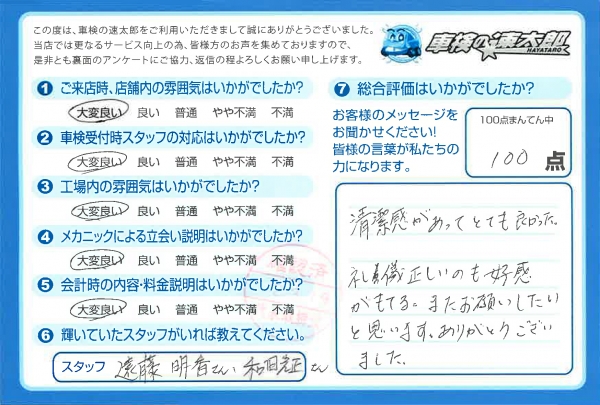 この度は、車検の速太郎をご利用いただきまして誠にありがとうございました。
当店では更なるサービス向上の為、皆様方のお声を集めておりますので、
是非とも裏面のアンケートにご協力、返信の程よろしくお願い申し上げます。
車検の速太郎
HAYATARO
1 ご来店時、店舗内の雰囲気はいかがでしたか?
大変良い 良い 普通 やや不満 不満
2 車検受付時スタッフの対応はいかがでしたか?
大変良い 良い 普通 やや不満 不満
3 工場内の雰囲気はいかがでしたか?
大変良い 良い 普通 やや不満 不満
4 メカニックによる立会い説明はいかがでしたか?
大変良い 良い 普通 やや不満 不満
5 会計時の内容・料金説明はいかがでしたか?
大変良い 良い 普通 やや不満 不満
6 輝いていたスタッフがいれば教えてください。
スタッフ 遠藤 明香さん、和田 さん
7 総合評価はいかがでしたか?
お客様のメッセージを
お聞かせください!
皆様の言葉が私たちの
力になります。
100点まんてん中
100 点
清潔感があってとても良かった。
礼儀正しいのも好感
がもてる。またお願いしたい
と思います。ありがとうござい
ました。